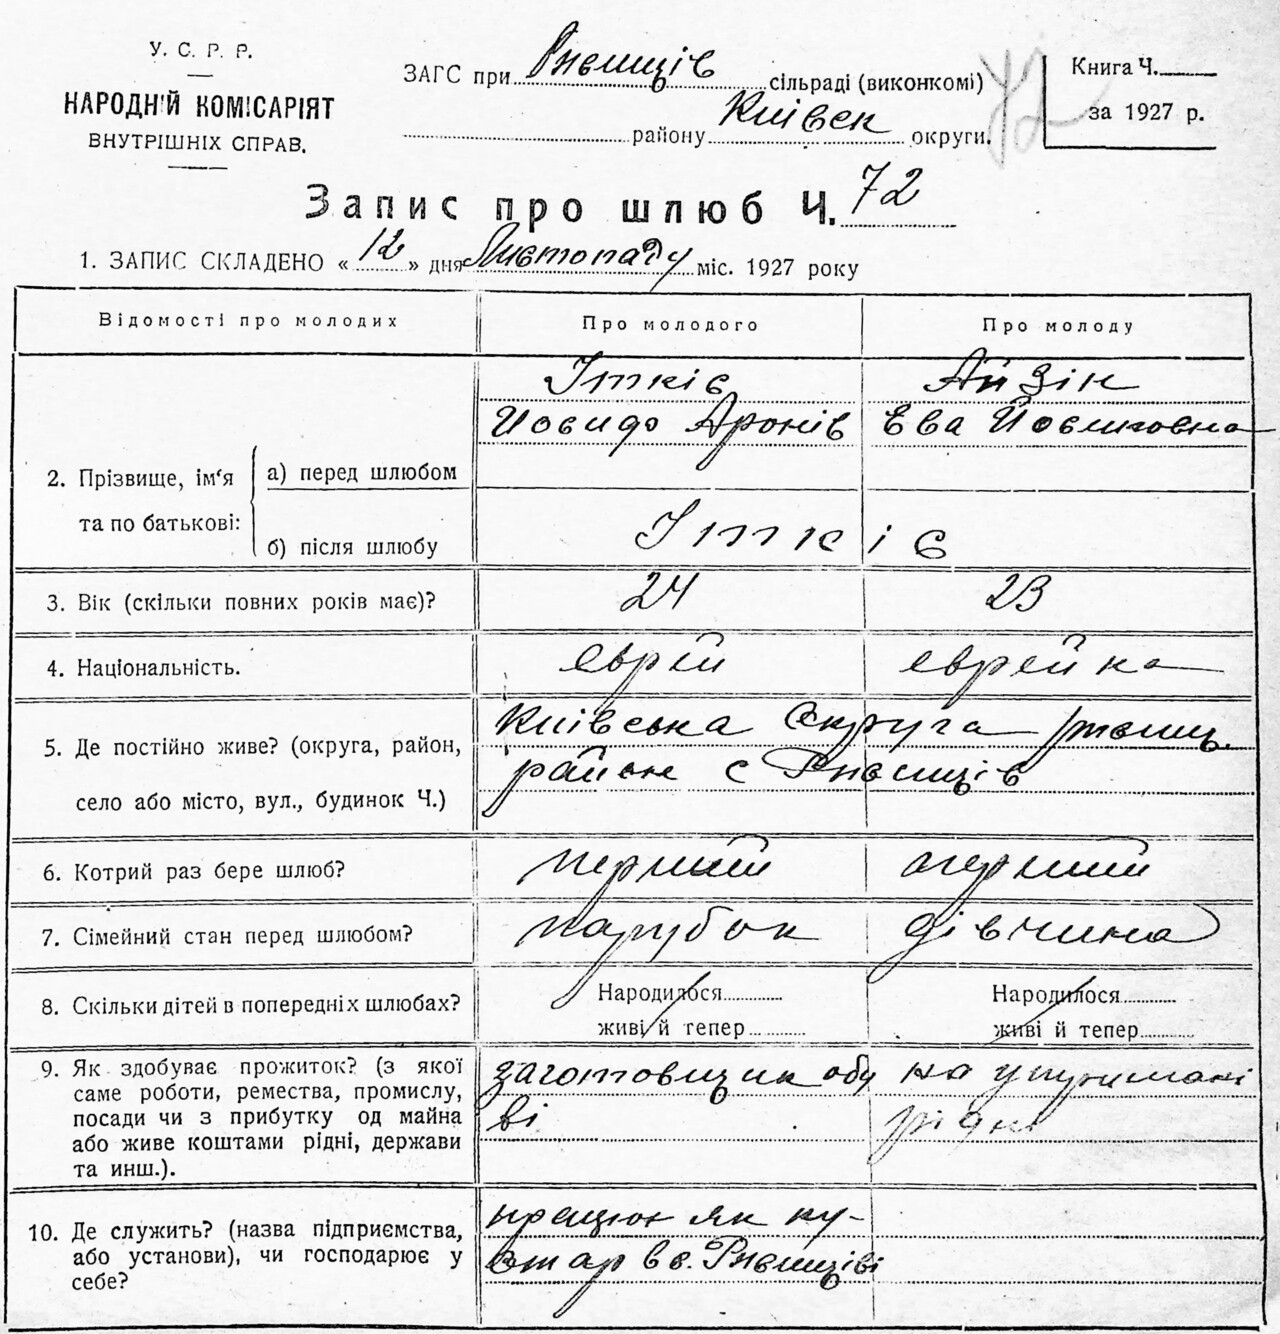 У. С. Р. Р.
НАРОДНІЙ КОМІСАРІЯТ
ВНУТРІШНІХ СПРАВ.
ЗАГС при Ржищів сільраді (виконкомі)
району Київськ округи.
72
Книга Ч.
за 1927 р.
Запис про шлюб Ч. 72
1. ЗАПИС СКЛАДЕНО « 12 » дня Листопаду міс. 1927 року
Відомості про молодих
Про молодого
Про молоду
2. Прізвище, ім'я та по батькові:
а) перед шлюбом
Іткіс
Аронів
Айзін
Ева
б) після шлюбу
Іткіс
3. Вік (скільки повних років має)?
24
23
4. Національність.
еврей
еврейка
5. Де постійно живе? (округа, район,
село або місто, вул., будинок Ч.)
Київська Округа ржищ.
район с Ржищів
6. Котрий раз бере шлюб?
перший
перший
7. Сімейний стан перед шлюбом?
парубок
дівчина
8. Скільки дітей в попередніх шлюбах?
Народилося
живі й тепер
Народилося
живі й тепер
9. Як здобуває прожиток? (з якої
саме роботи, ремества, промислу,
посади чи з прибутку од майна
або живе коштами рідні, держави
та инш.).
заготовщик обу
ві
на утримані
рідні
10. Де служить? (назва підприємства,
або установи), чи господарює у
себе?
працює як ку-
стар в с. Ржищіві